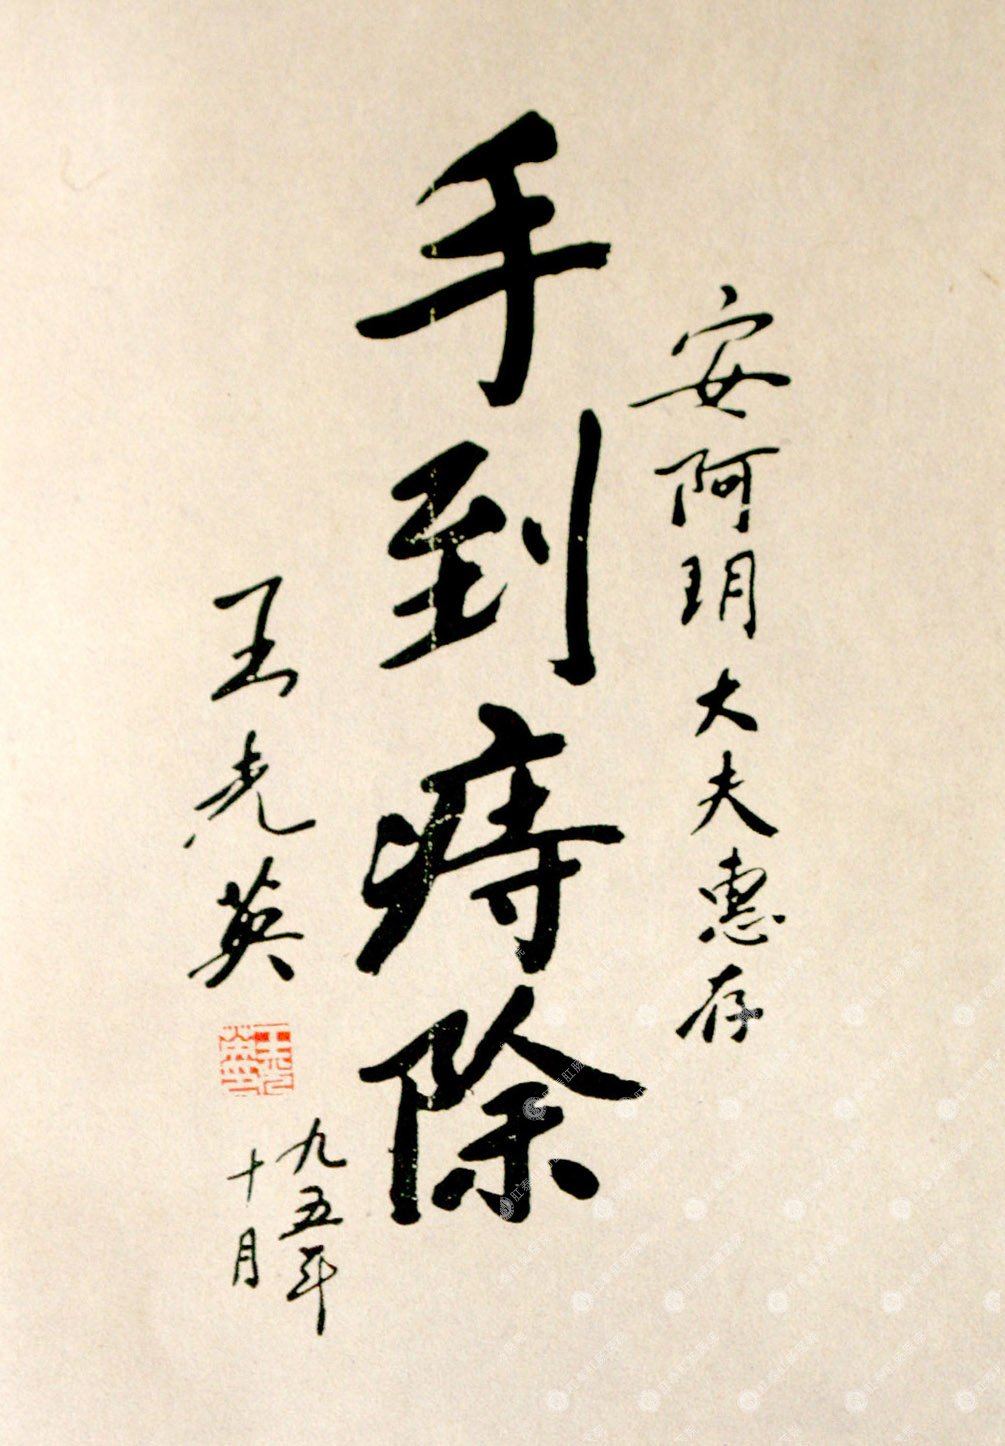 安阿玥大夫惠存
手到痔除
王光英
九五年
十月